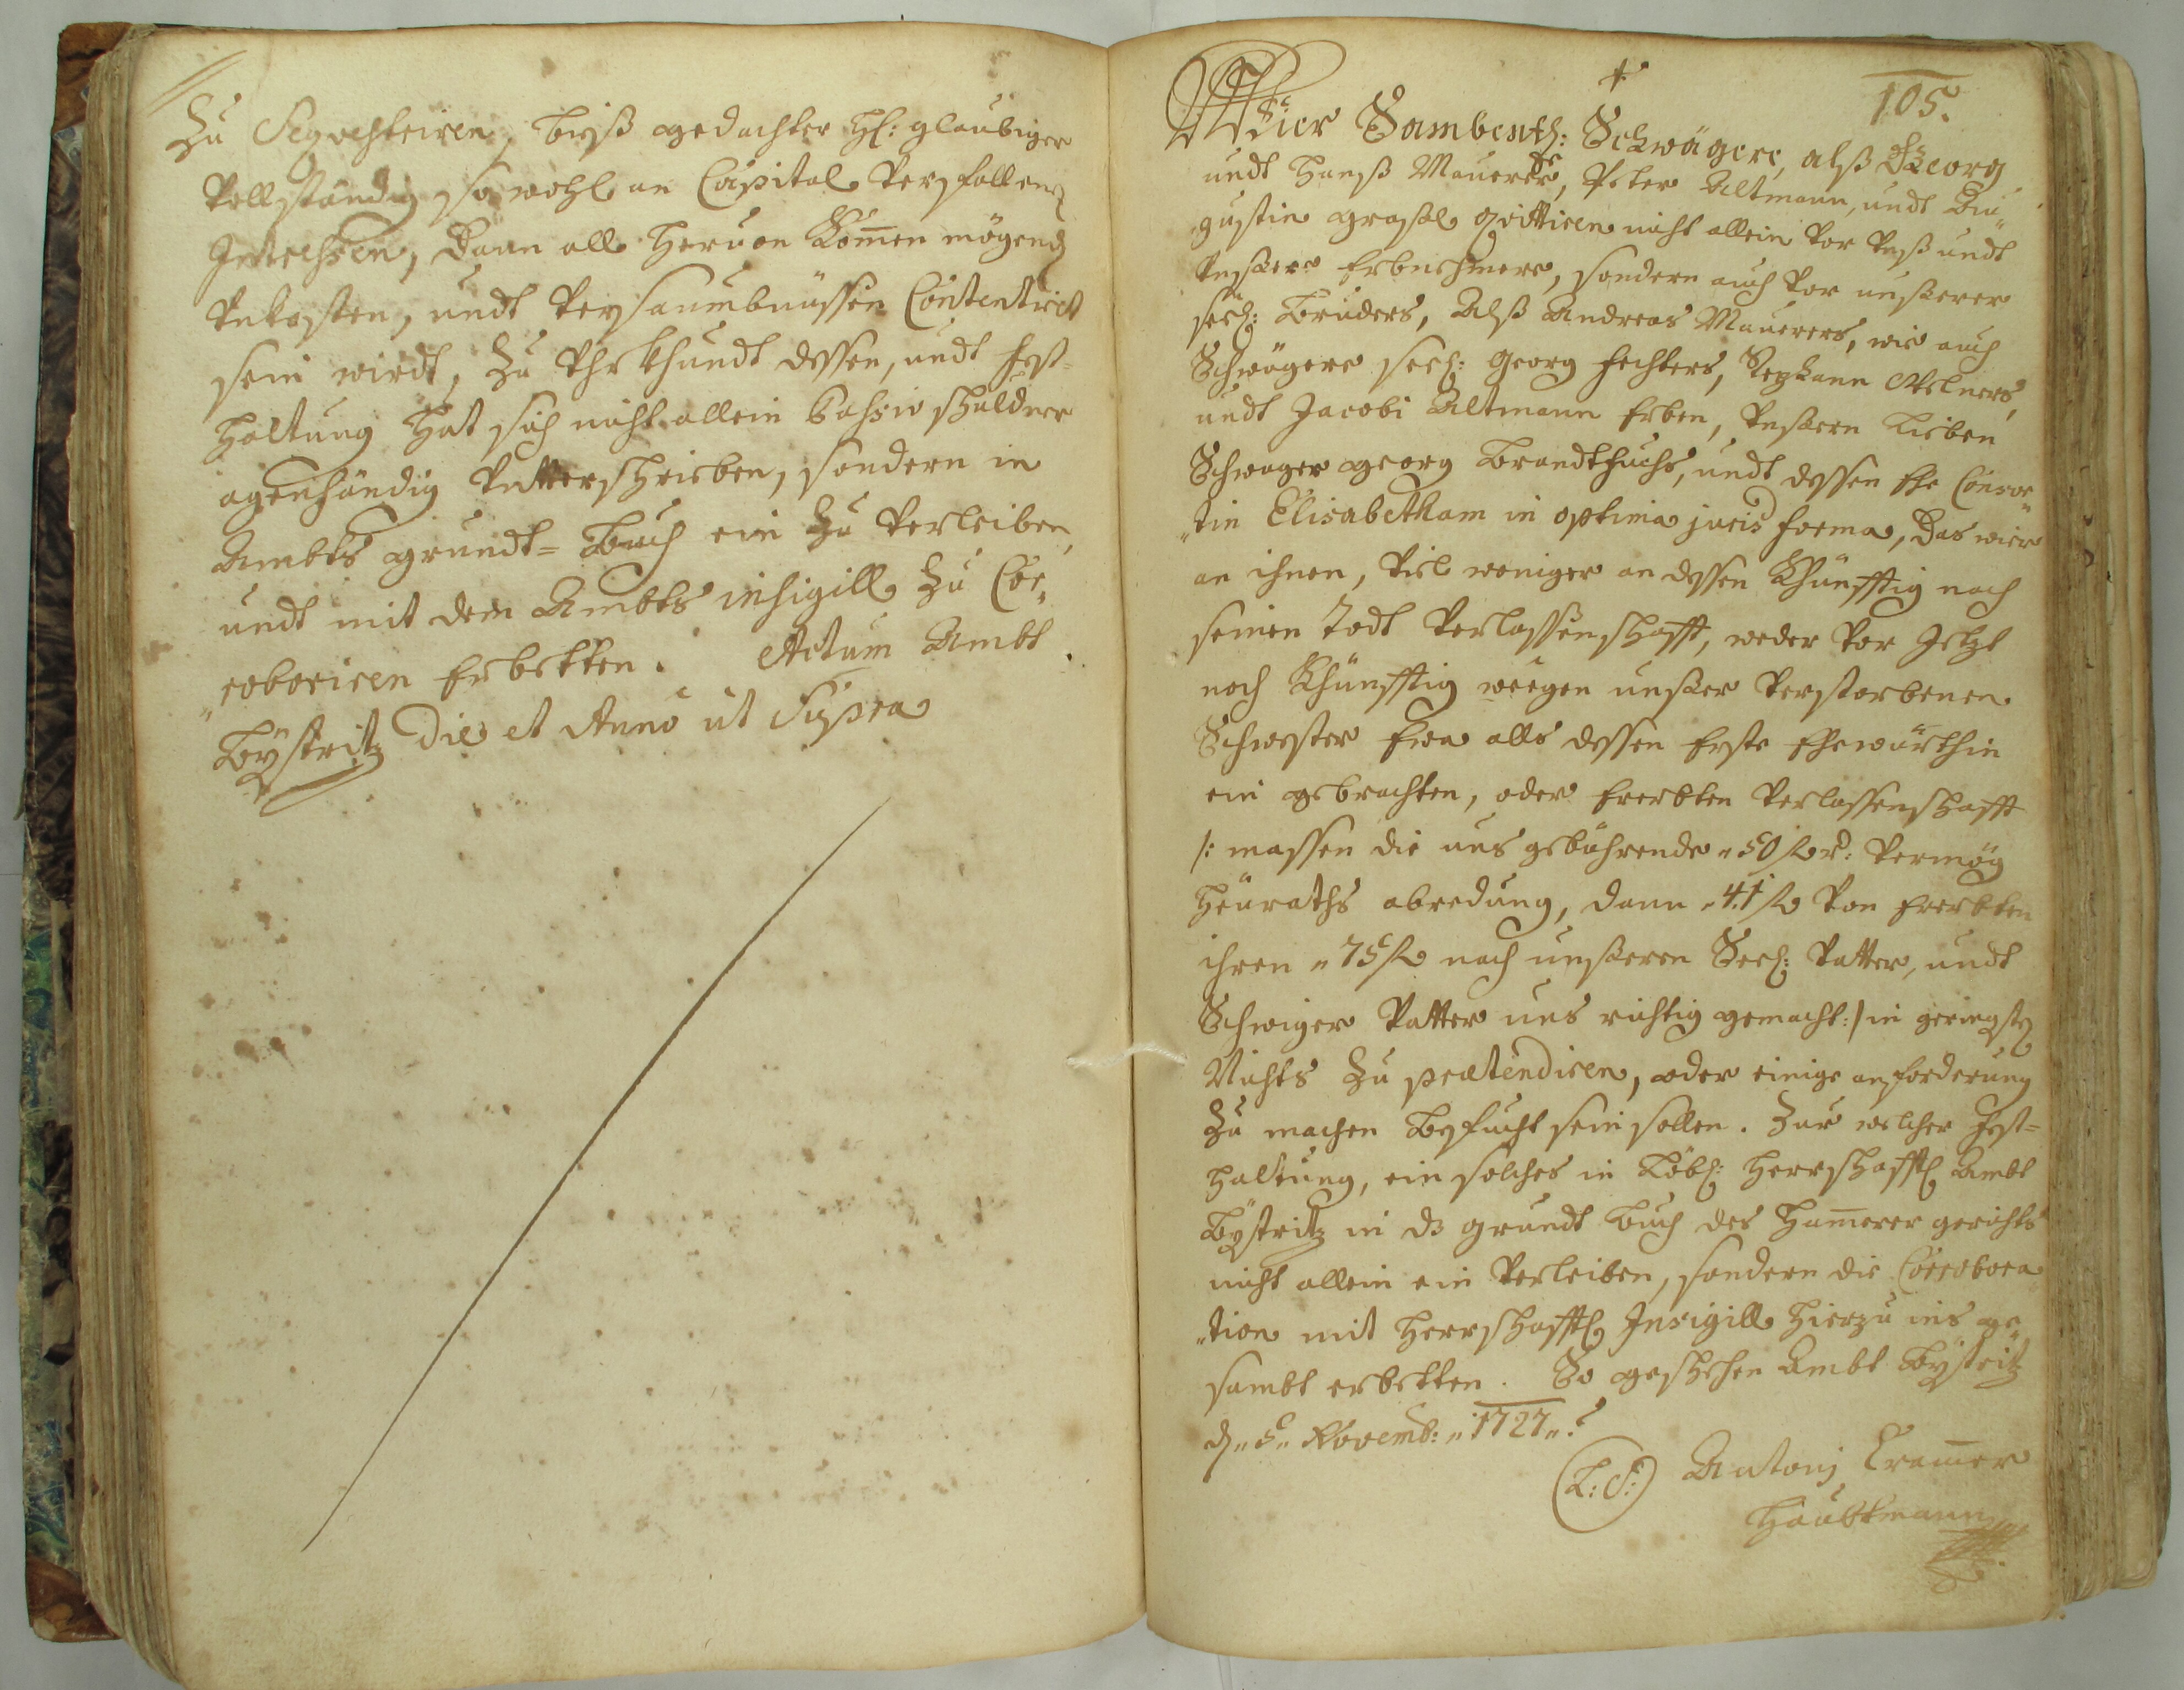 Zu Seqvestriren, biß gedachter H: glaubiger
Vollständig so wohl an Capital Verfallenen
Interessen, dann all hervon Kom̄en mögenden
Vnkosten, undt Versaumbnüssen Contentirt
sein wirdt, Zu Vhrkhundt dessen, undt fest-
haltung hat sich nicht allein Passiv schuldner
aigenhändig Untterschrieben, sondern in
Ambts grundt-Buch ein Zu Verleiben,
undt mit dem Ambts insigill Zu Cor„
„roboriren Erbetten. Actum Ambt
Bÿstritz Die et Anno ut Supra
105.
Wier Sambentl: Schwägere, alß Georg
undt Hanß Maurer, Peter Altmann, undt Au„
„gustin graßl qvittiren nicht allein Vor Vnß undt
Vnßere Erbnehmere, sondern auch Vor unßerer
seel: Brüders, Alß Andreas Maurers, wie auch
Schwägere seel: Georg Fechters,
undt Jacobi Altmann Erben, Vnßern lieben
Schwager georg Brandtfuchs, undt dessen Ehe Consor„
„tin Elisabetham in optima juris forma, das wier
an ihnen, Viel weniger an dessen Khünfftig nach
seinen Todt Verlassenschafft, weder Vor Jetzt
noch Khünfftig weegen unßer Verstorbenen
Schwester Eva alls dessen Erste Ehewürthin
ein gebrachten, oder Ererbten Verlassenschafft
/: massen die uns gebührende „50 fl r: Vermög
Heuraths abredung, dann „41 fl Von Ererbten
ihren „75 fl nach unßeren Seel: Vatter, undt
Schwiger Vatter uns richtig gemacht :/ in geringsten
Nichts Zu prætendiren, oder einige anforderung
Zu machen Befucht sein sollen. Zur welcher fest-
haltung, ein solches in Löbl: Herrschafftl Ambt
Bÿstritz in ds grundt Buch des Ham̄erer gerichts
nicht allein ein Verleiben, sondern die Corrobora„
„tion mit Herrschafftl Insigill hierzu ins ge„
sambt erbetten. So geschehen Ambt Bÿstritz
d „5„ Novemb: „1727„
(L:S:) Antonj Cram̄er
Haubtmann